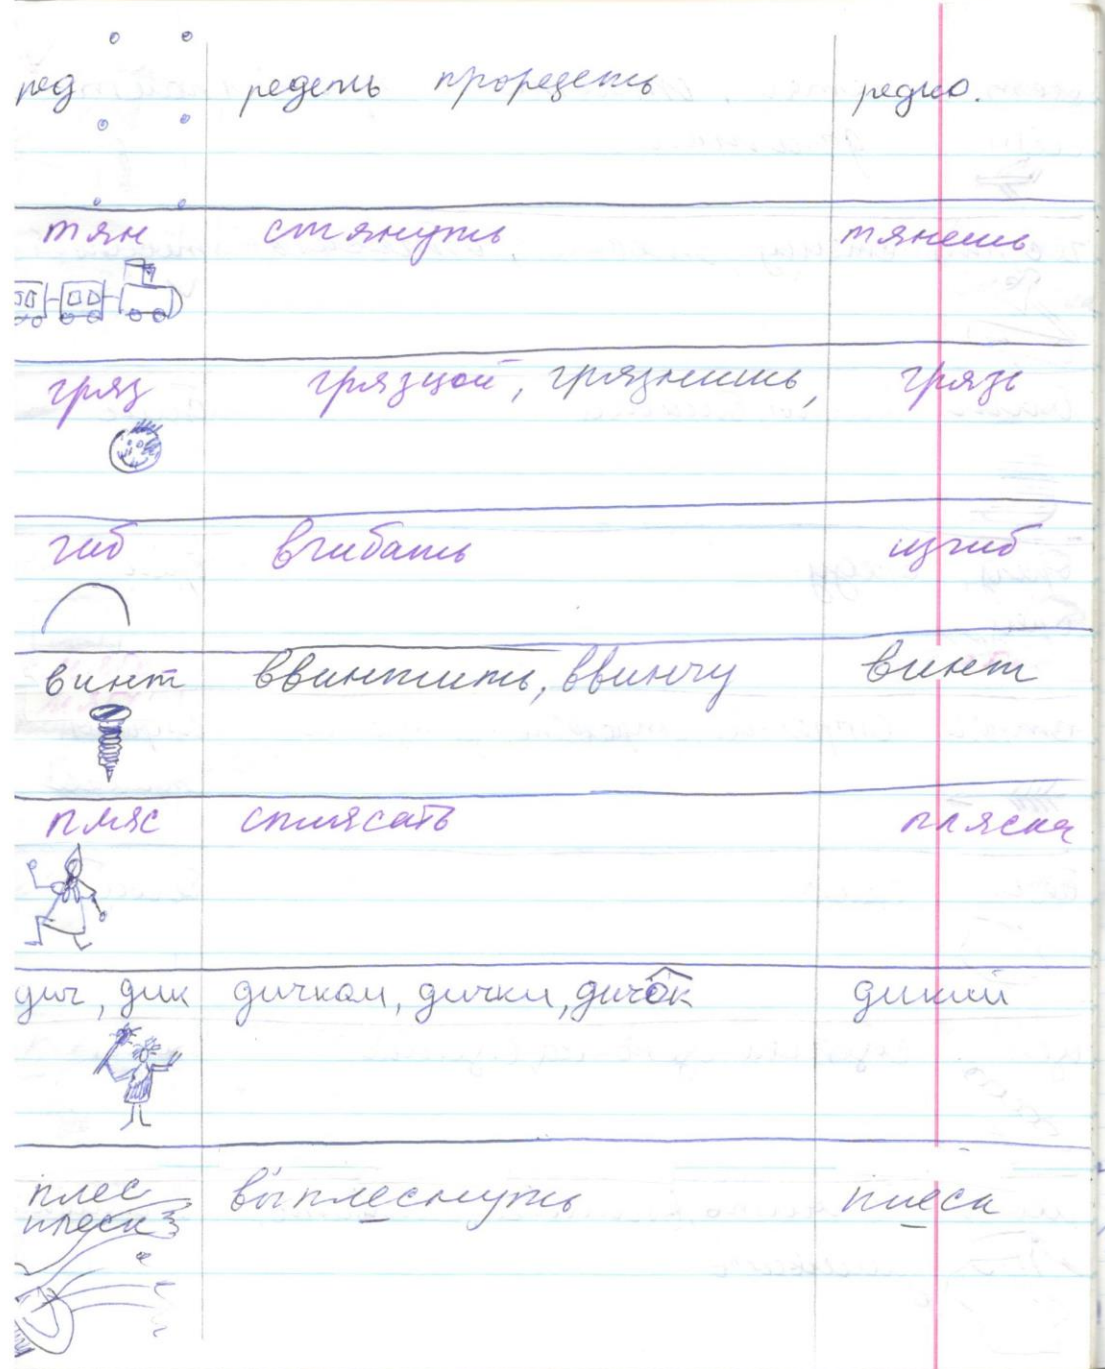 ред редеть проредеть редко.
тян стянуть тянешь
гряз грязцой, грязнишь, грязь
гиб вгибать изгиб
винт ввинтить, ввинчу винт
пляс сплясать пляска
дич, дик дичком, дички, дичок дикий
плес выплеснуть плеск
плеск